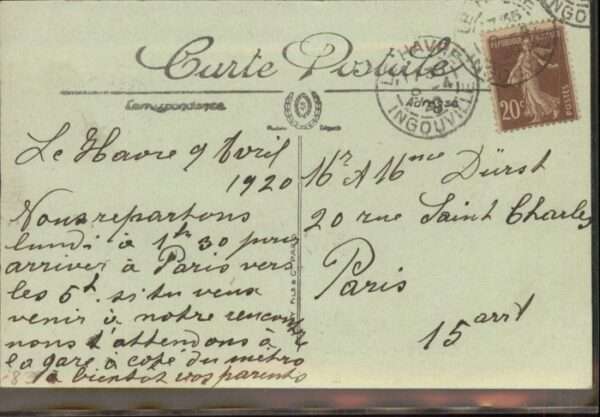 Carte Postale
Correspondance
Adresse
LE HAVRE
INGOUVILLE
REPUBLIQUE FRANCAISE
20c
POSTES
Le Havre 9 Avril
1920
Nous repartons
lundi à 1h 30 pour
arriver à Paris vers
les 5h. si tu veux
venir à notre rencontre
nous t'attendons à
la gare à coté du métro
à bientôt vos parents
Mr & Mme Dürst
20 rue Saint Charles
Paris
15 arrt